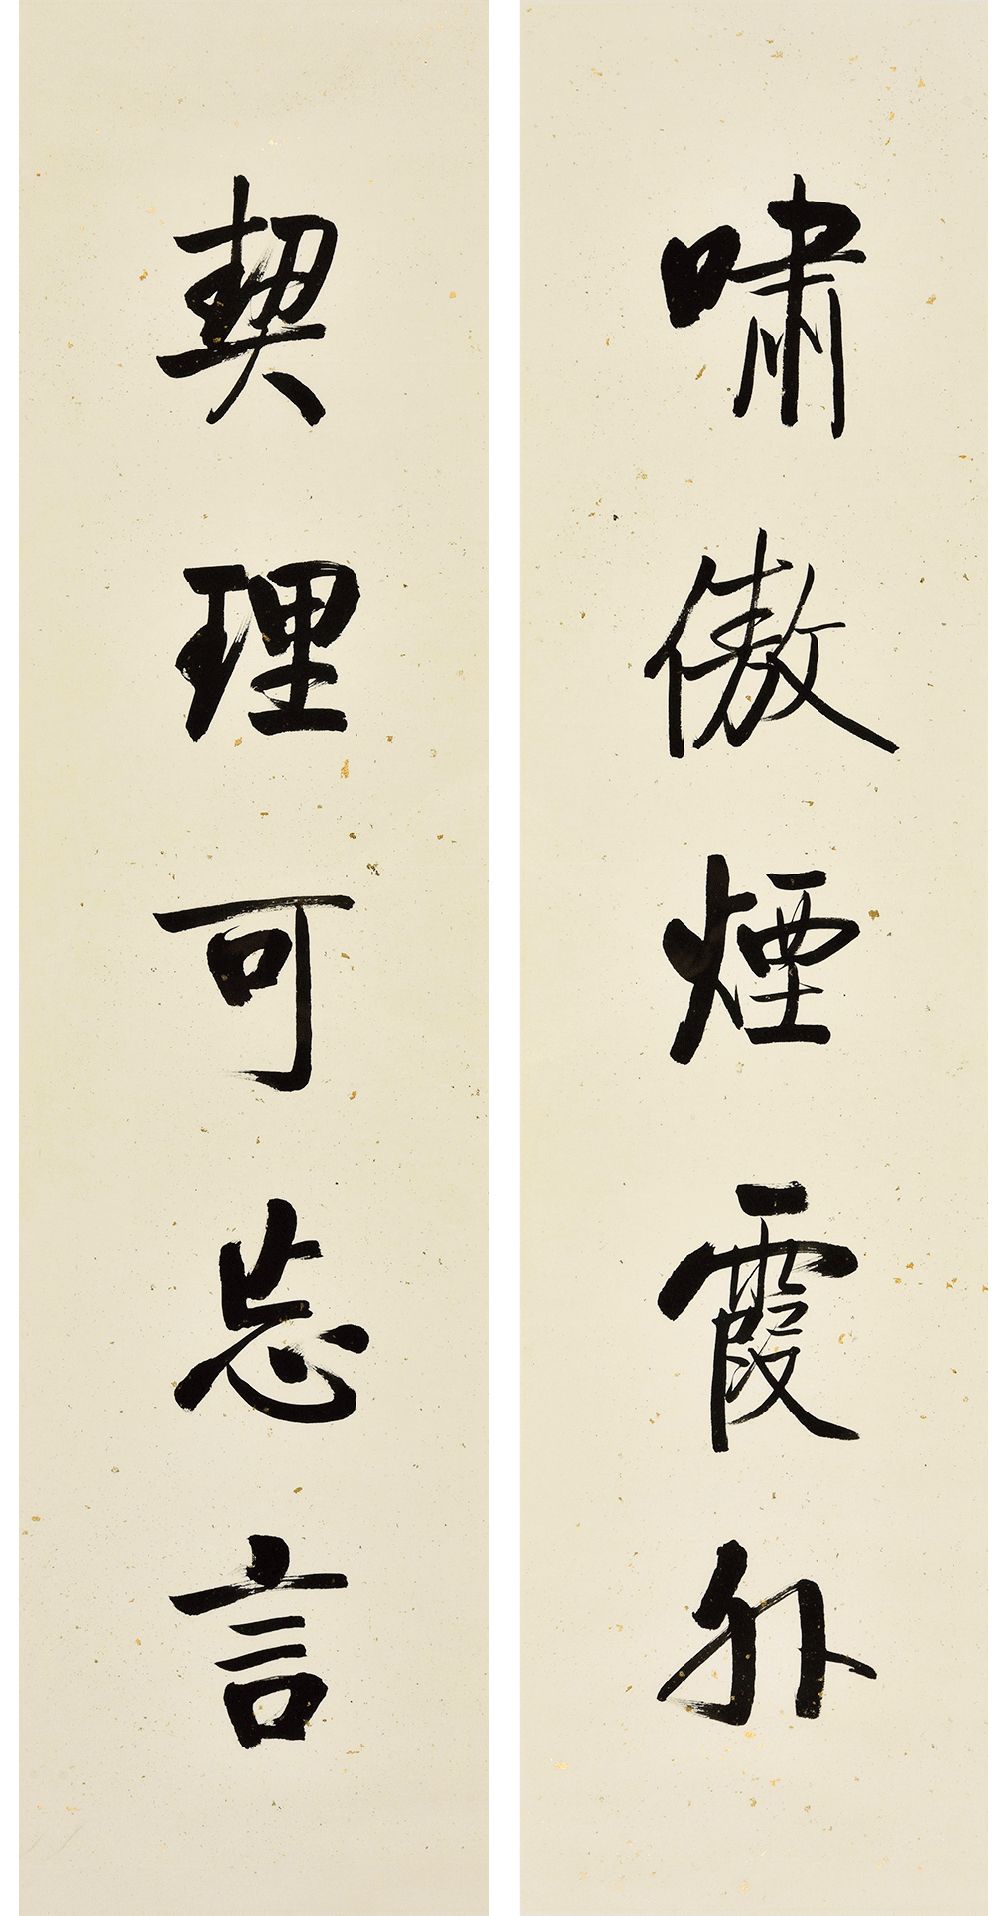 嘯傲煙霞外
契理可忘言